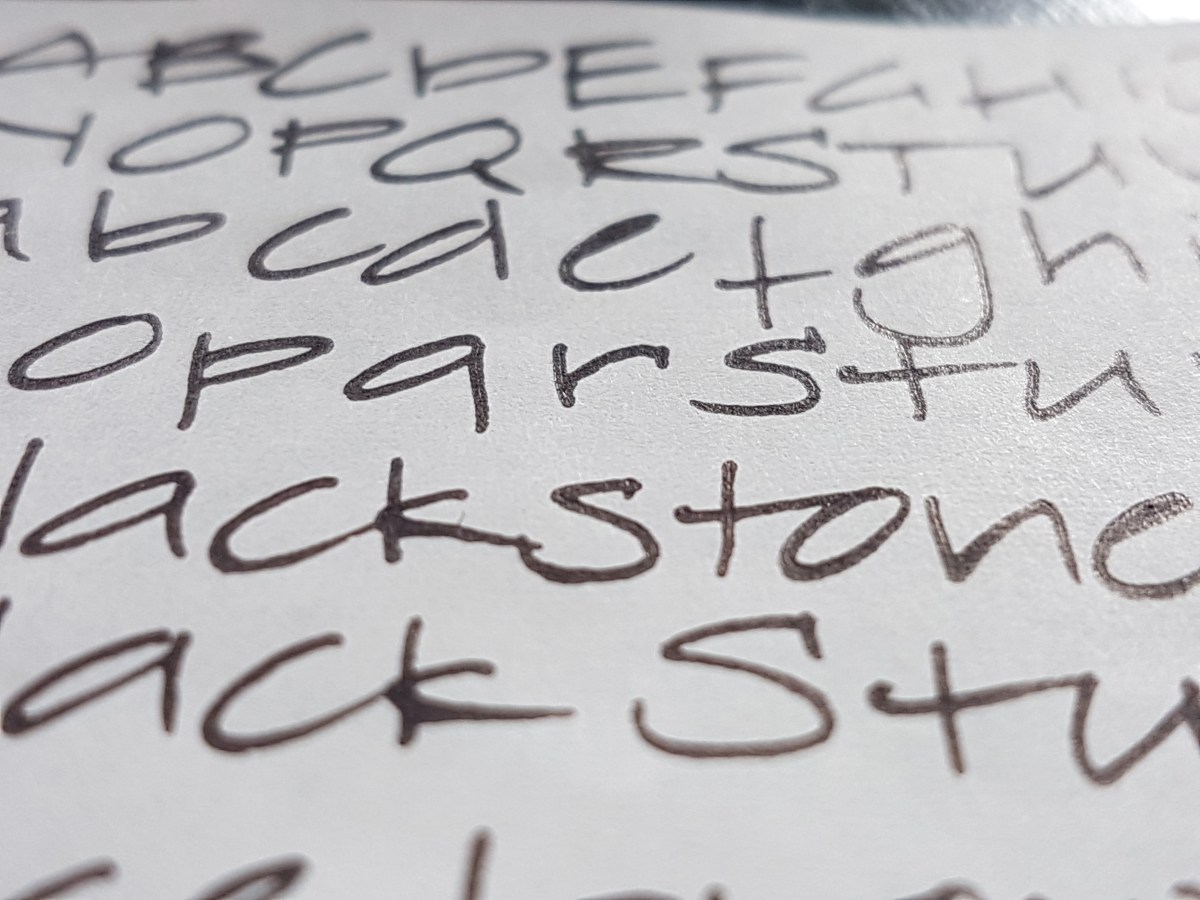 A B C D E F G H
O P Q R S T U
a b c d e f g h
o p q r s t u
lackstone
lack Stu